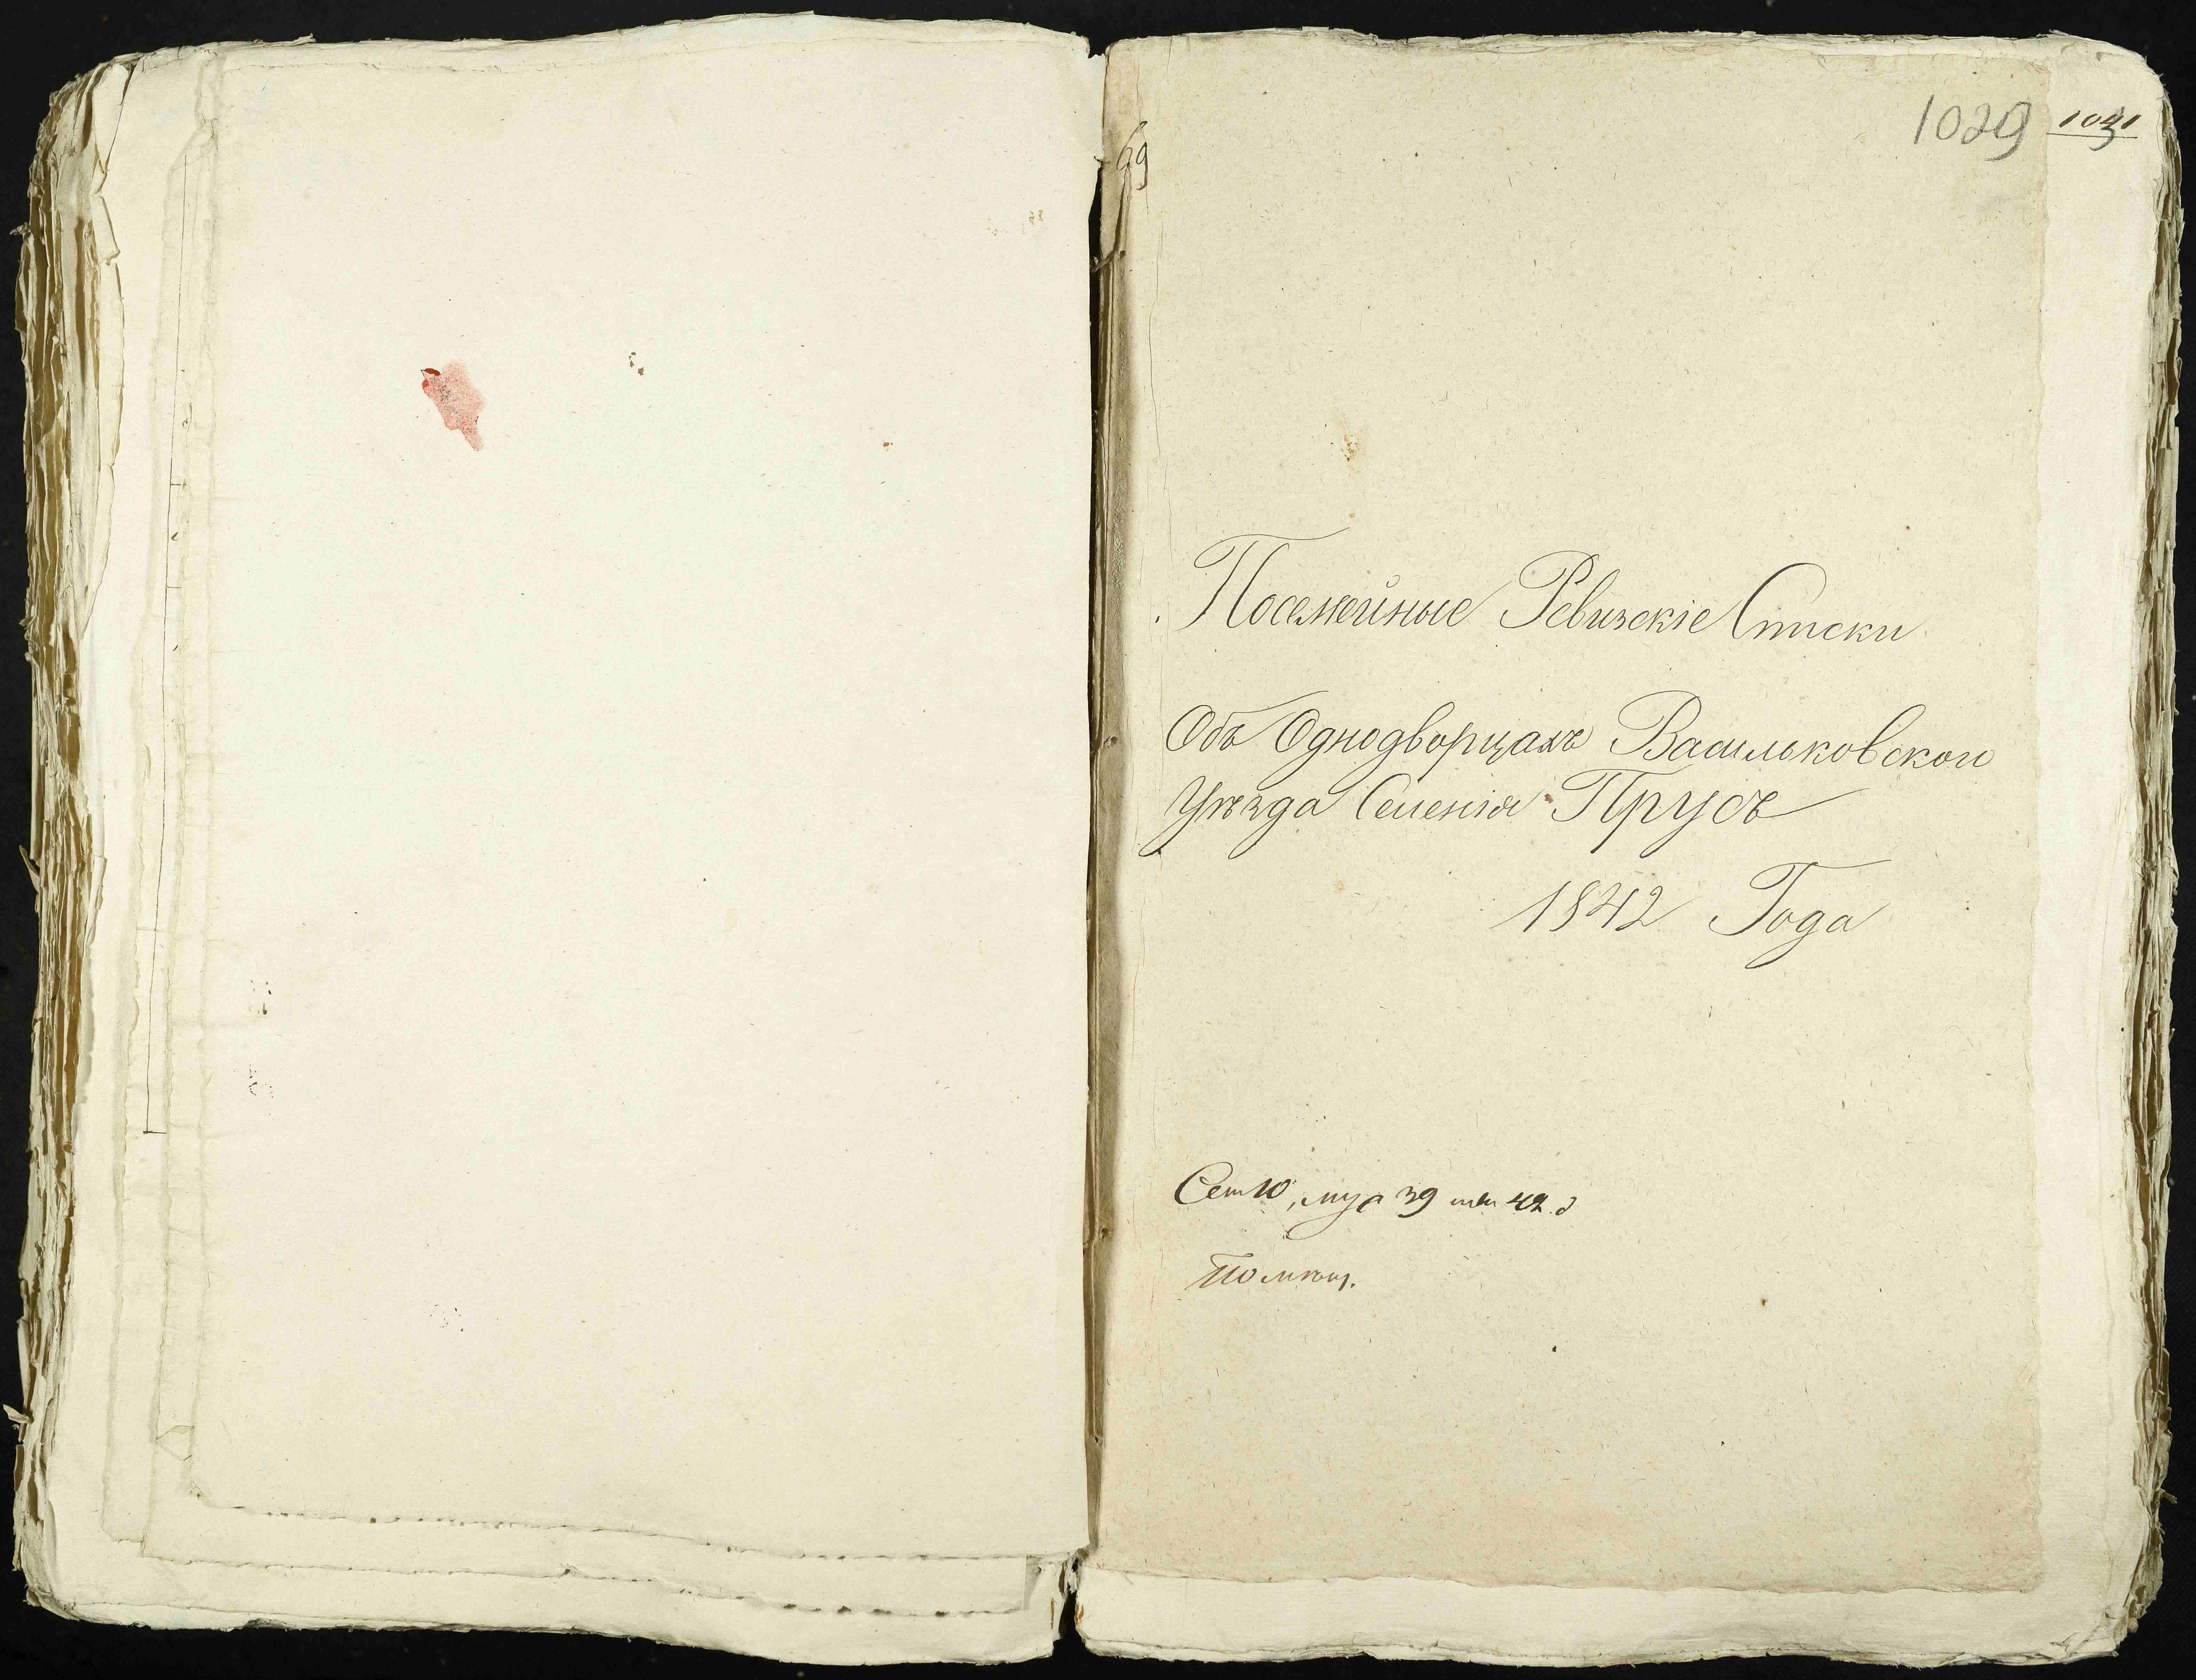 1029 1031
69
Посемейные Ревизскіе Списки
Объ Однодворцахъ Васильковскои
Уѣзда Селенія Прусъ
1842 Года
Сем 10, муж 39 жен 42.